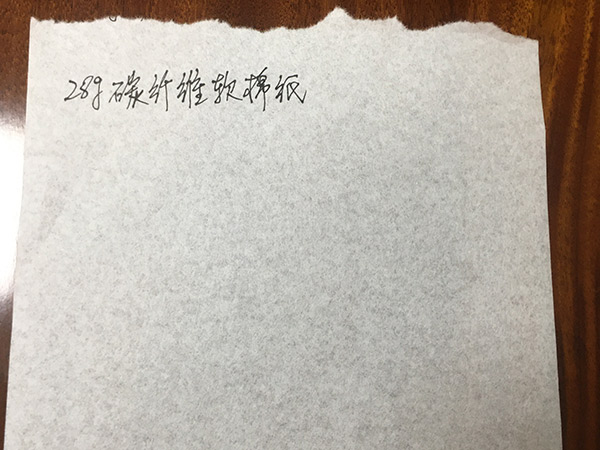 28g碳纤维软棉纸